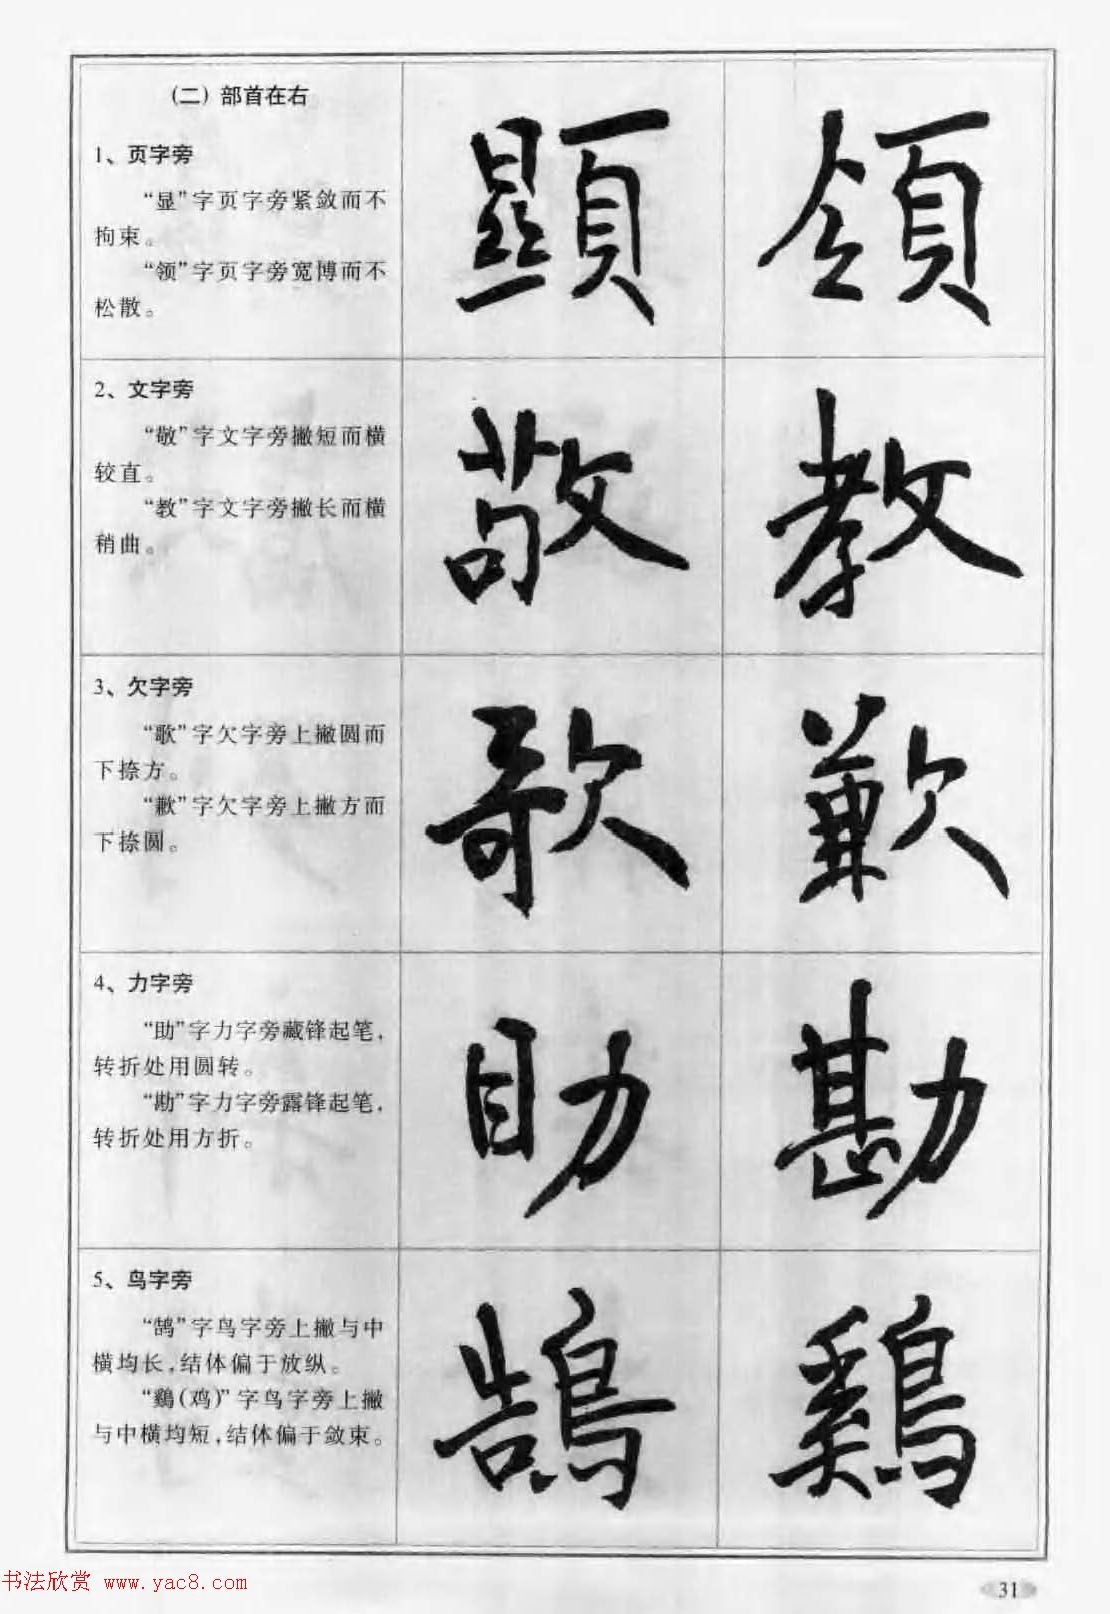 (二) 部首在右
1、页字旁
“显”字页字旁紧敛而不
拘束。
“领”字页字旁宽博而不
松散。
顯 領
2、文字旁
“敬”字文字旁撇短而横
较直。
“教”字文字旁撇长而横
稍曲。
敬 教
3、欠字旁
“歌”字欠字旁上撇圆而
下捺方。
“歉”字欠字旁上撇方而
下捺圆。
歌 歉
4、力字旁
“助”字力字旁藏锋起笔,
转折处用圆转。
“勘”字力字旁露锋起笔,
转折处用方折。
助 勘
5、鸟字旁
“鹄”字鸟字旁上撇与中
横均长,结体偏于放纵。
“鷄(鸡)”字鸟字旁上撇
与中横均短,结体偏于敛束。
鵠 鷄
书法欣赏 www.yac8.com
31